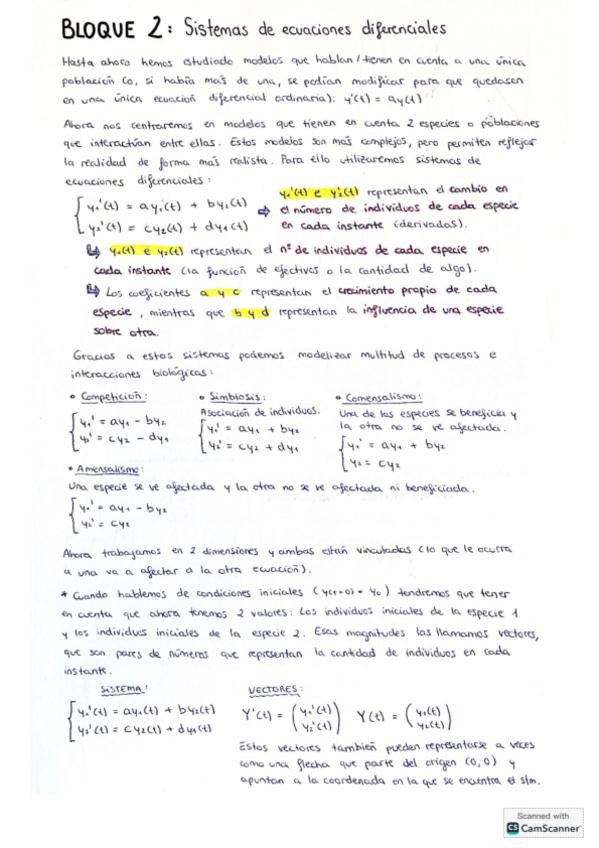 BLOQUE 2: Sistemas de ecuaciones diferenciales
Hasta ahora hemos estudiado modelos que hablan/tienen en cuenta a una única
población (o, si había más de una, se podían modificar para que quedasen
en una única ecuación diferencial ordinaria): y'(t) = ay(t)
Ahora nos centraremos en modelos que tienen en cuenta 2 especies o poblaciones
que interactúan entre ellas. Estos modelos son más complejos, pero permiten reflejar
la realidad de forma más realista. Para ello utilizaremos sistemas de
ecuaciones diferenciales:
y₁'(t) = ay₁(t) + by₂(t)
y₂'(t) = cy₂(t) + dy₁(t)
⇨ y₁'(t) e y₂'(t) representan el cambio en
el número de individuos de cada especie
en cada instante (derivadas).
↳ y₁(t) e y₂(t) representan el nº de individuos de cada especie en
cada instante (la función de efectivos o la cantidad de algo).
↳ Los coeficientes a y c representan el crecimiento propio de cada
especie, mientras que b y d representan la influencia de una especie
sobre otra.
Gracias a estos sistemas podemos modelizar multitud de procesos e
interacciones biológicas:
• Competición:
y₁' = ay₁ - by₂
y₂' = cy₂ - dy₁
• Simbiosis:
Asociación de individuos.
y₁' = ay₁ + by₂
y₂' = cy₂ + dy₁
• Comensalismo:
Una de las especies se beneficia y
la otra no se ve afectada.
y₁' = ay₁ + by₂
y₂ = cy₂
• Amensalismo:
Una especie se ve afectada y la otra no se ve afectada ni beneficiada.
y₁' = ay₁ - by₂
y₂' = cy₂
Ahora trabajamos en 2 dimensiones y ambas están vinculadas (lo que le ocurra
a una va a afectar a la otra ecuación).
* Cuando hablemos de condiciones iniciales (y(t=0) = y₀) tendremos que tener
en cuenta que ahora tenemos 2 valores: Los individuos iniciales de la especie 1
y los individuos iniciales de la especie 2. Esas magnitudes las llamamos vectores,
que son pares de números que representan la cantidad de individuos en cada
instante.
SISTEMA:
y₁'(t) = ay₁(t) + by₂(t)
y₂'(t) = cy₂(t) + dy₁(t)
VECTORES:
Y'(t) = (y₁'(t) y₂'(t)) Y(t) = (y₁(t) y₂(t))
Estos vectores también pueden representarse a veces
como una flecha que parte del origen (0,0) y
apuntan a la coordenada en la que se encuentra el stm.
Scanned with
CS CamScanner